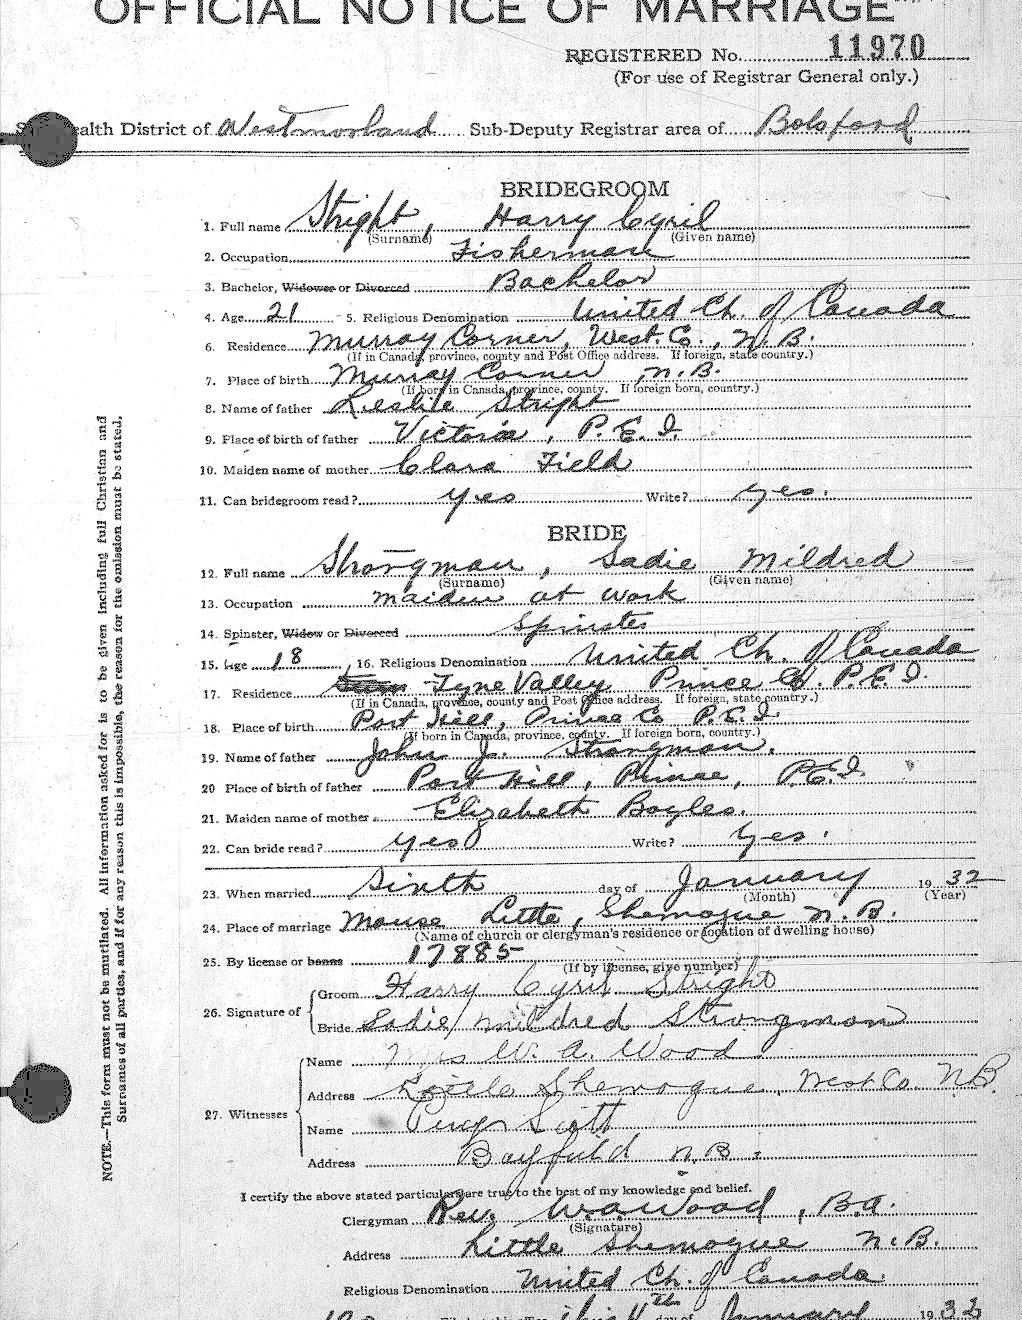 OFFICIAL NOTICE OF MARRIAGE
REGISTERED No. 11970
(For use of Registrar General only.)
ealth District of Westmorland Sub-Deputy Registrar area of Botsford
BRIDEGROOM
1. Full name Stright, Harry Cyril
(Surname) (Given name)
2. Occupation Fisherman
3. Bachelor, Widower or Divorced Bachelor
4. Age 21 5. Religious Denomination United Ch. of Canada
6. Residence Murray Corner, West. Co., N.B.
(If in Canada, province, county and Post Office address. If foreign, state country.)
7. Place of birth Murray Corner N.B.
(If born in Canada, province, county. If foreign born, country.)
8. Name of father Leslie Stright
9. Place of birth of father Victoria, P.E.I.
10. Maiden name of mother Clara Field
11. Can bridegroom read? yes Write? yes.
BRIDE
12. Full name Strongman, Sadie Mildred
(Surname) (Given name)
13. Occupation maiden at work
14. Spinster, Widow or Divorced Spinster
15. Age 18 16. Religious Denomination United Ch. of Canada
17. Residence Tyne Valley Prince Co. P.E.I.
(If in Canada, province, county and Post Office address. If foreign, state country.)
18. Place of birth Port Hill, Prince Co P.E.I
(If born in Canada, province, county. If foreign born, country.)
19. Name of father John J. Strongman.
20 Place of birth of father Port Hill, Prince, P.E.I
21. Maiden name of mother Elizabeth Boyles.
22. Can bride read? yes Write? yes.
23. When married Sixth day of January 1932
(Month) (Year)
24. Place of marriage Manse Little, Shemogue N.B.
(Name of church or clergyman's residence or location of dwelling house)
25. By license or banns 17885
(If by license, give number)
26. Signature of
Groom Harry Cyril Stright
Bride Sadie Mildred Strongman
27. Witnesses
Name Mrs W. A. Wood
Address Little Shemogue, West Co. N.B.
Name
Address Bayfield N.B.
I certify the above stated particulars are true to the best of my knowledge and belief.
Clergyman Rev. W.A. Wood, B.A.
(Signature)
Address Little Shemogue N.B.
Religious Denomination United Ch. of Canada
day of January 1932
NOTE.—This form must not be mutilated. All information asked for is to be given including full Christian and
Surnames of all parties, and if for any reason this is impossible, the reason for the omission must be stated.